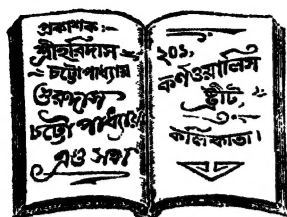 প্রকাশক :–
শ্রীহরিদাস
চট্টোপাধ্যায়
গুরুদাস
চট্টোপাধ্যায়
এণ্ড সন্স
২০১,
কর্ণওয়ালিস
ষ্ট্রীট,
কলিকাতা।